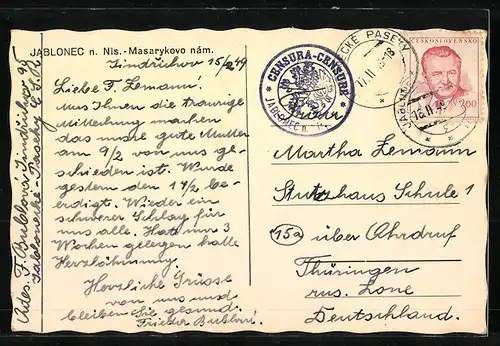 JABLONEC n. Nis.-Masarykovo nám.
Jindřichov 15/2 49
Liebe F. Zemann!
Mus Ihnen die traurige
Mitteilung machen
das meine gute Mutter
am 9/2 von uns ge-
schieden ist. Wurde
gestern den 14/2 be-
erdigt. Wieder ein
schwerer Schlag für
uns alle. Hat nur 3
Wochen gelegen hatte
Herzlähmung.
Herzliche Grüsse
von uns und
bleiben Sie gesund.
Frieda Bublová
Ades. F. Bublová Jindřichov 95
Jablonecké-Paseky Č.S.R.
* CENSURA-CENSURE *
JABLONEC n. N.
CKÉ PASEKY
ČESKOSLOVENSKO
3,00
Frau
Martha Zemann
Stutzhaus Schule 1
15a über Ohrdruf
Thüringen
rus. Zone
Deutschland.